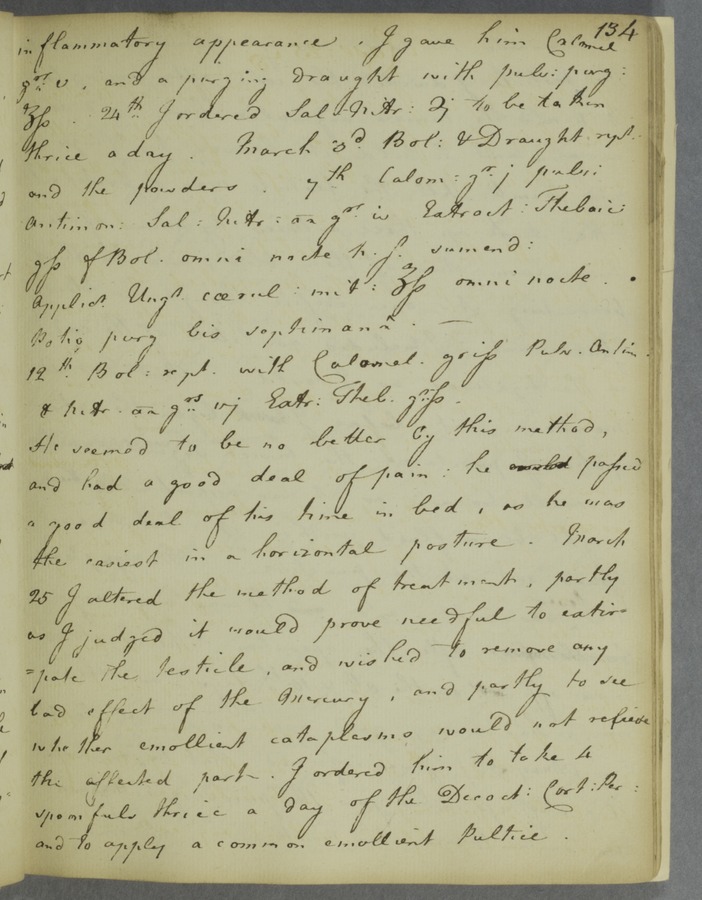 134
inflammatory appearance. I gave him Calomel
grs. v, and a purging draught with pulv: purg:
ʒß. 24th I ordered Sal: Nitr: ʒj to be taken
thrice a day. March 3d Bol: & Draught rept.
and the powders. 7th Calom: gr. j pulv:
Antimon: Sal: Nitr: aa grs. iv Extract: Thebaic:
gß f Bol. omni nocte h. s. sumend:
Applict. Ungt. cœrul: mit: ʒß omni nocte.
Potio purg bis septimana. —
12th. Bol: rept. with Calomel. griß Pulv. Antim.
& Nitr. aa grs vj Extr: Theb. grß.
He seemed to be no better by this method,
and had a good deal of pain: he passed
a good deal of his time in bed, as he was
the easiest in a horizontal posture. March
25 I altered the method of treatment, partly
as I judged it would prove needful to extir=
=pate the testicle, and wished to remove any
bad effect of the Mercury, and partly to see
whether emollient cataplasms would not relieve
the affected part. I ordered him to take 4
spoonfuls thrice a day of the Decoct: Cort: Per:
and to apply a common emollient Pultice.